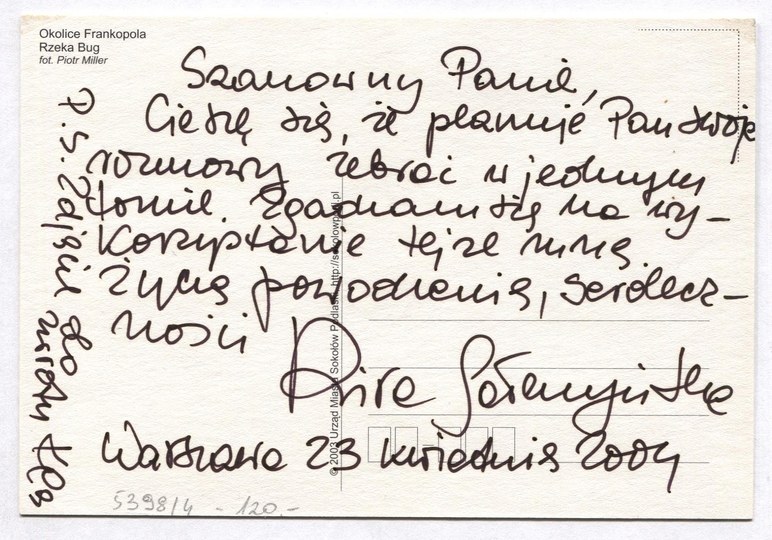 Okolice Frankopola
Rzeka Bug
fot. Piotr Miller
Szanowny Panie,
Cieszę się, że planuje Pan swoje
rozmowy zebrać w jednym
tomie. Zgadzam się na wy-
korzystanie tejże ze mną.
Życzę powodzenia, serdecz-
ności
Warszawa 23 kwietnia 2004
P.S. Zdjęcie do
zwrotu
© 2003 Urząd Miasta Sokołów Podlaski, http://sokolowpodl.pl
5398/4 - 120.-